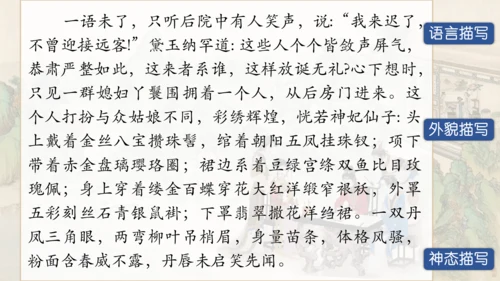 一语未了，只听后院中有人笑声，说：“我来迟了，
不曾迎接远客！”黛玉纳罕道：这些人个个皆敛声屏气，
恭肃严整如此，这来者系谁，这样放诞无礼?心下想时，
只见一群媳妇丫鬟围拥着一个人，从后房门进来。这
个人打扮与众姑娘不同，彩绣辉煌，恍若神妃仙子：头
上戴着金丝八宝攒珠髻，绾着朝阳五凤挂珠钗；项下
带着赤金盘璃璎珞圈；裙边系着豆绿宫绦双鱼比目玫
瑰佩；身上穿着缕金百蝶穿花大红洋缎窄裉袄，外罩
五彩刻丝石青银鼠褂；下罩翡翠撒花洋绉裙。一双丹
凤三角眼，两弯柳叶吊梢眉，身量苗条，体格风骚，
粉面含春威不露，丹唇未启笑先闻。
语言描写
外貌描写
神态描写